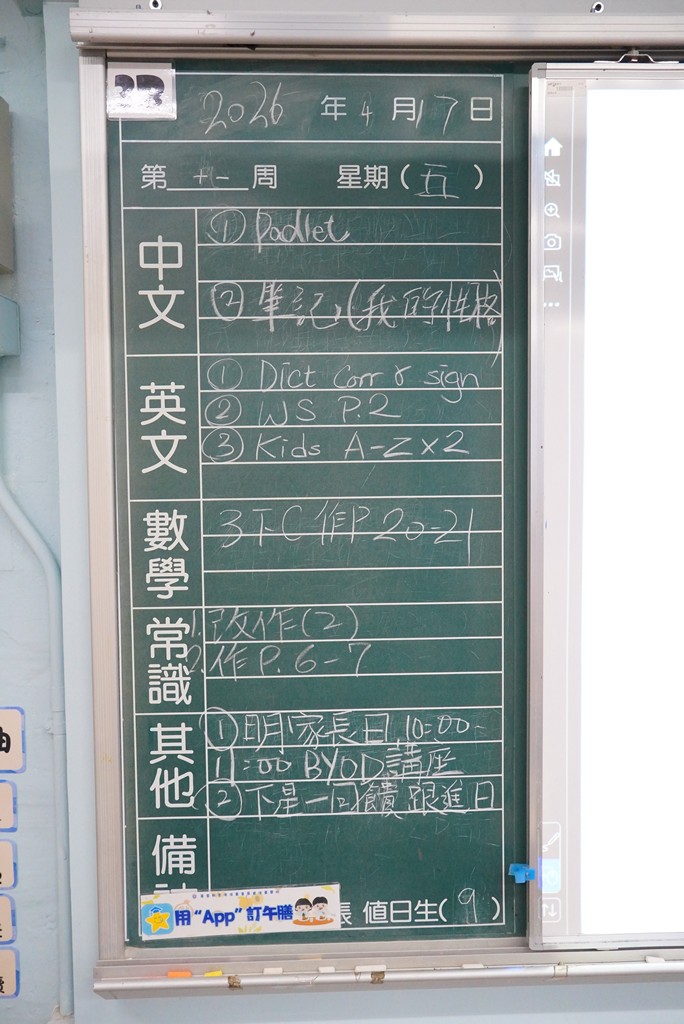 2026 年 4 月 17 日
第 十一 周 星期 (五)
中文
① Padlet
② 筆記,(我的性格)
英文
① Dict Corr & sign
② WS P.2
③ Kids A-Z x2
數學
3下C 作P 20-21
常識
1. 改作(2)
2. 作P.6-7
其他
① 明家長日,10:00-
11:00 BYOD講座
② 下星一回饋 跟進日
備
用“App”訂午膳
長 值日生(9)